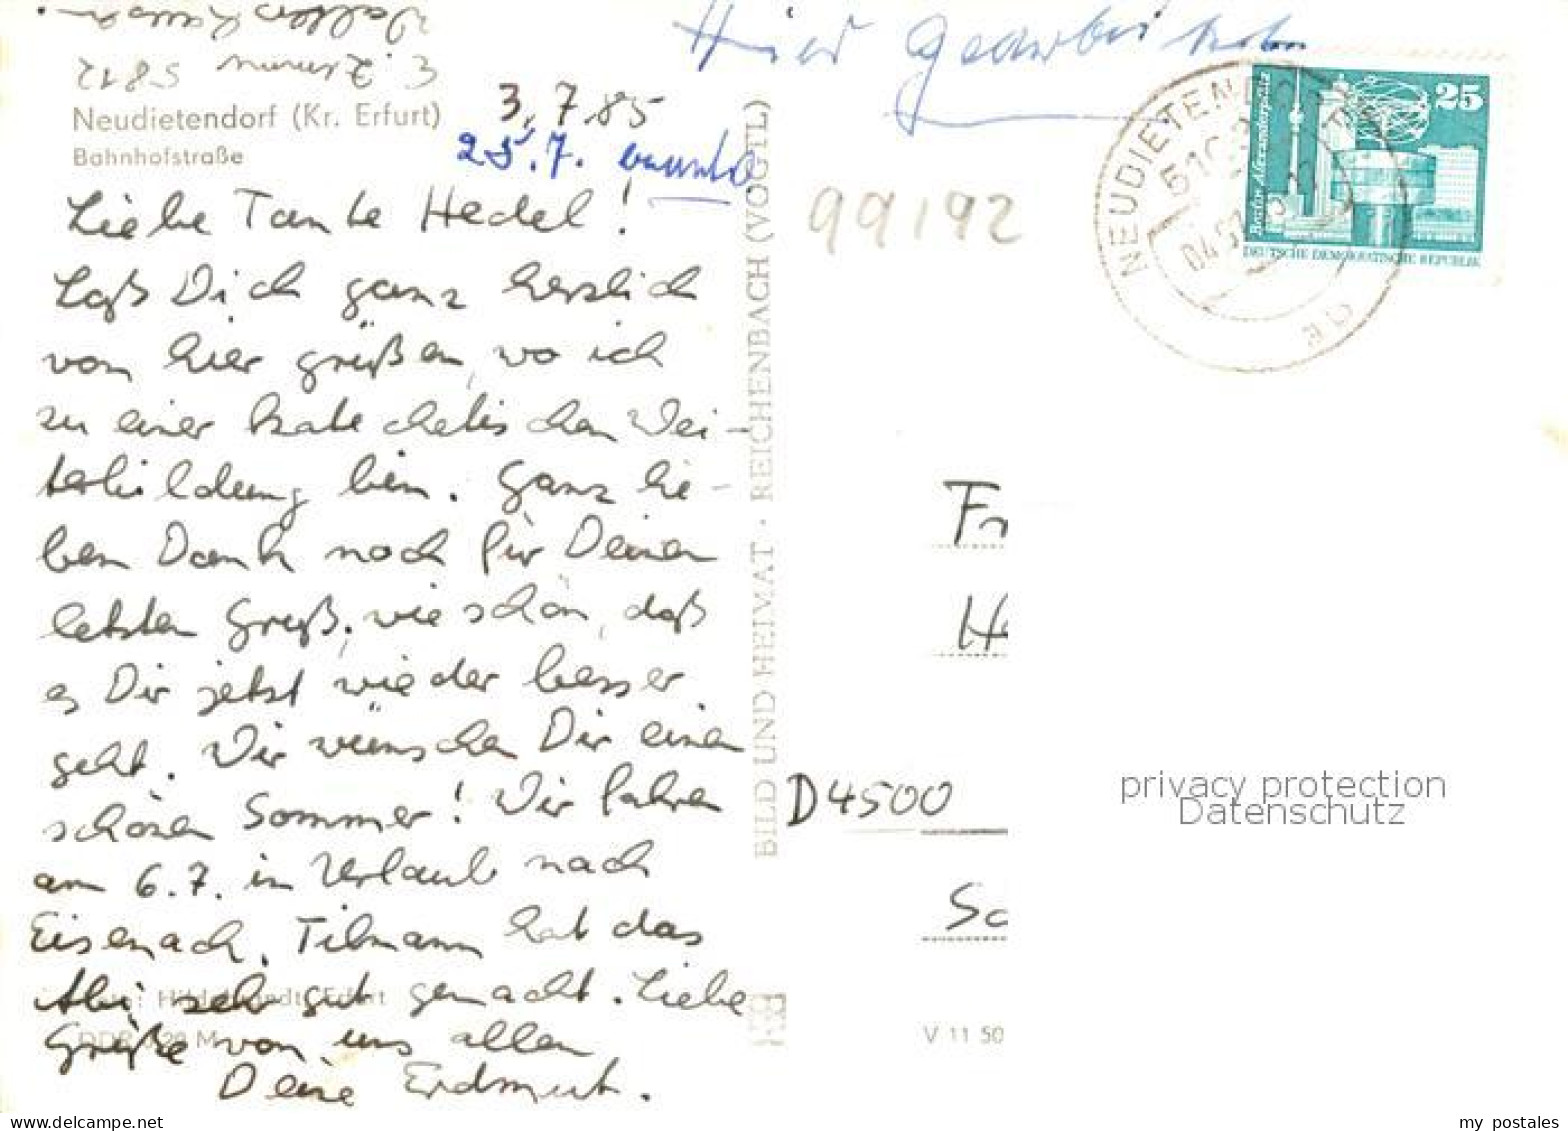 Neudietendorf (Kr. Erfurt)
Bahnhofstraße
3.7.85
25.7.
Liebe Tante Hedel!
Laß Dich ganz herzlich
von hier grüßen, wo ich
zu einer katechetischen Wei-
terbildung bin. Ganz lie-
ben Dank noch für Deinen
letzten Gruß, wie schön, daß
es Dir jetzt wieder besser
geht. Wir wünschen Dir einen
schönen Sommer! Wir fahren
am 6.7. in Urlaub nach
Eisenach. Tilmann hat das
Abi sehr gut gemacht. Liebe
Grüße von uns allen
Deine Erdmut.
BILD UND HEIMAT · REICHENBACH (VOGTL)
Hier
99/92
NEUDIETEN
25
Berlin, Alexanderplatz
DEUTSCHE DEMOKRATISCHE REPUBLIK
Fr
D 4500
Sc
V 11 50
privacy protection
Datenschutz
delcampe.net
my postales